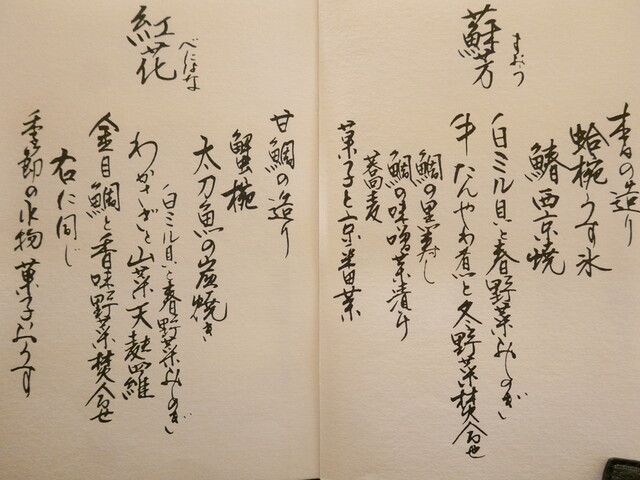 蘇芳
すおう
本日の造り
蛤椀うす氷
鰆西京焼
白ミル貝と春野菜ぬしのぎ
牛たんやわ煮と冬野菜焚合せ
鯛の黒寿し
鯛の味噌茶漬け
蕎麦
菓子と京番茶
紅花
べにばな
甘鯛の造り
蟹椀
太刀魚の炭焼き
白ミル貝と春野菜ぬしのぎ
わかさぎと山菜天麩羅
金目鯛と香味野菜焚合せ
右に同じ
季節の水物 菓子ふうす